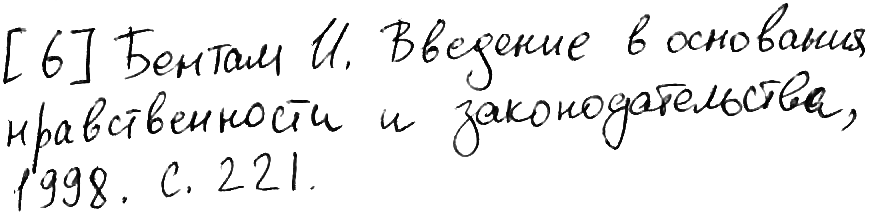 [6] Бентам И. Введение в основания
нравственности и законодательства,
1998. С. 221.